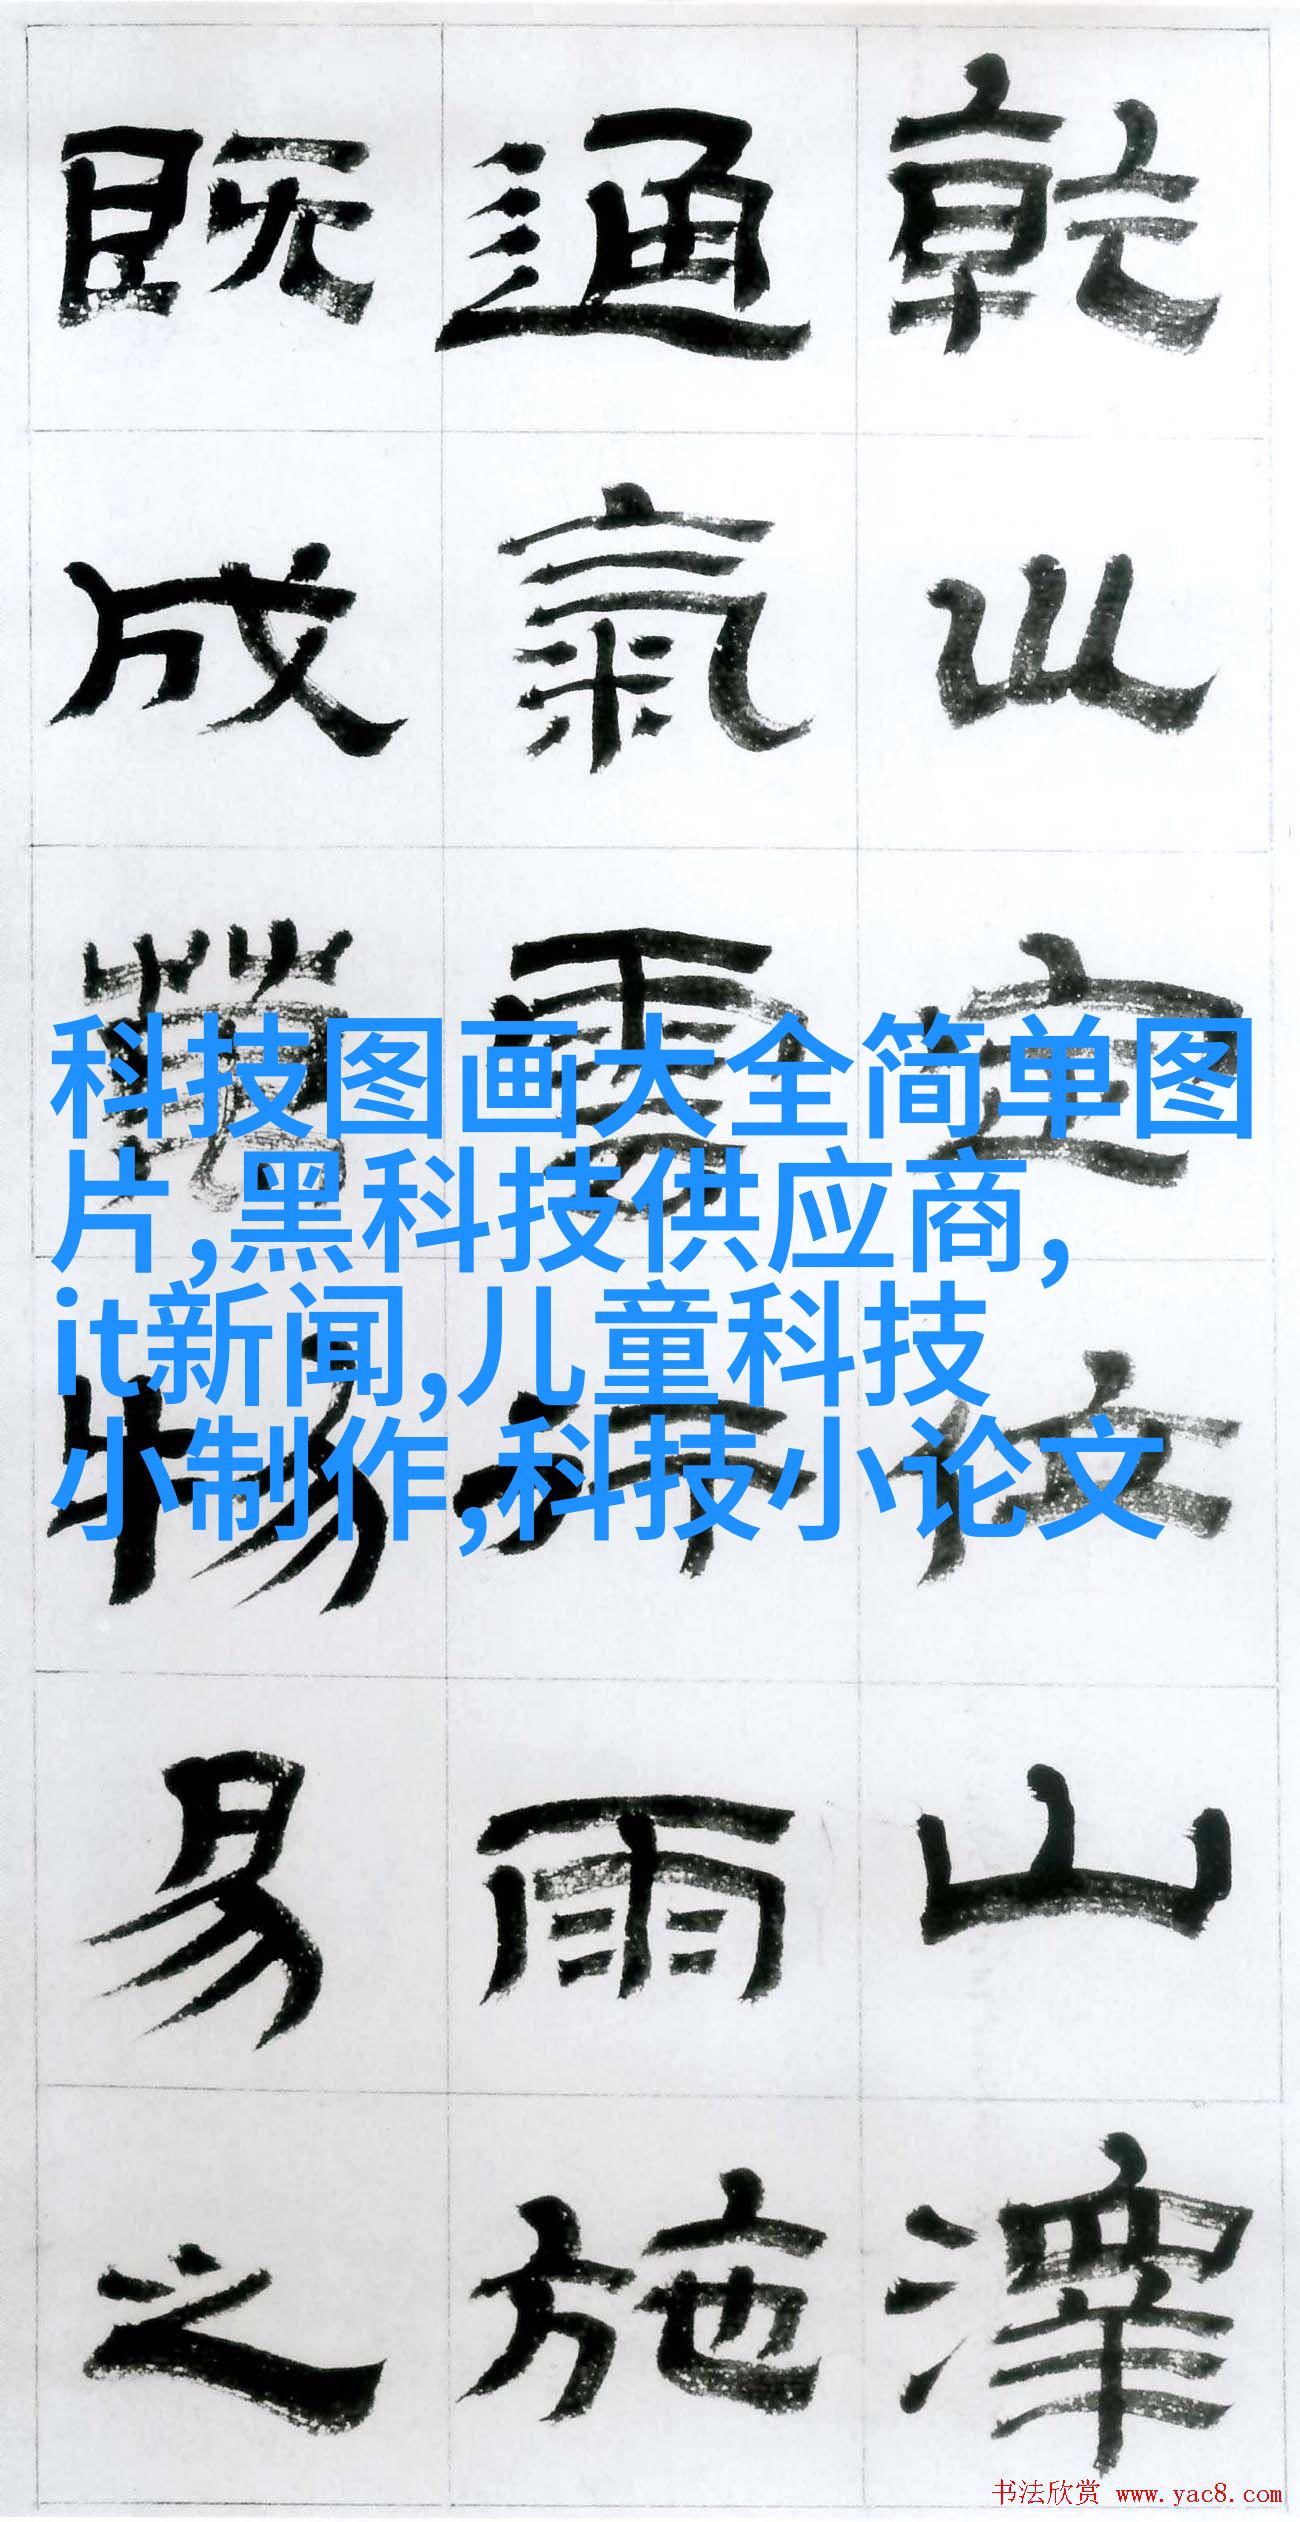 乾巛定位山澤
通氣雲行雨施
既成萬物易之
科技图画大全简单图
片,黑科技供应商,
it新闻,儿童科技
小制作,科技小论文
书法欣赏 www.yac8.com